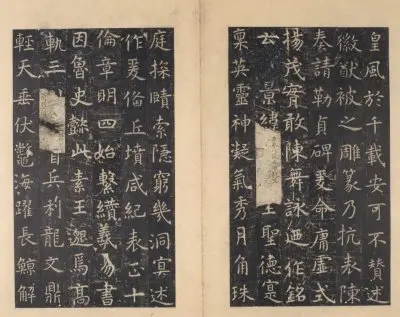 皇風於千載安可不贊述
徽猷被之雕篆乃抗表陳
奏請勒貞碑爰命庸虛式
揚茂實敢陳舞詠廼作銘
云景緯聖德寔
稟英靈神凝氣秀月角珠
庭探賾索隱窮幾洞冥述
作爰俻丘墳咸紀表正十
倫章明四始繫纘羲易書
因魯史懿此素王邈焉高
軌三首兵利龍文鼎
輕天垂伏鼈海躍長鯨解